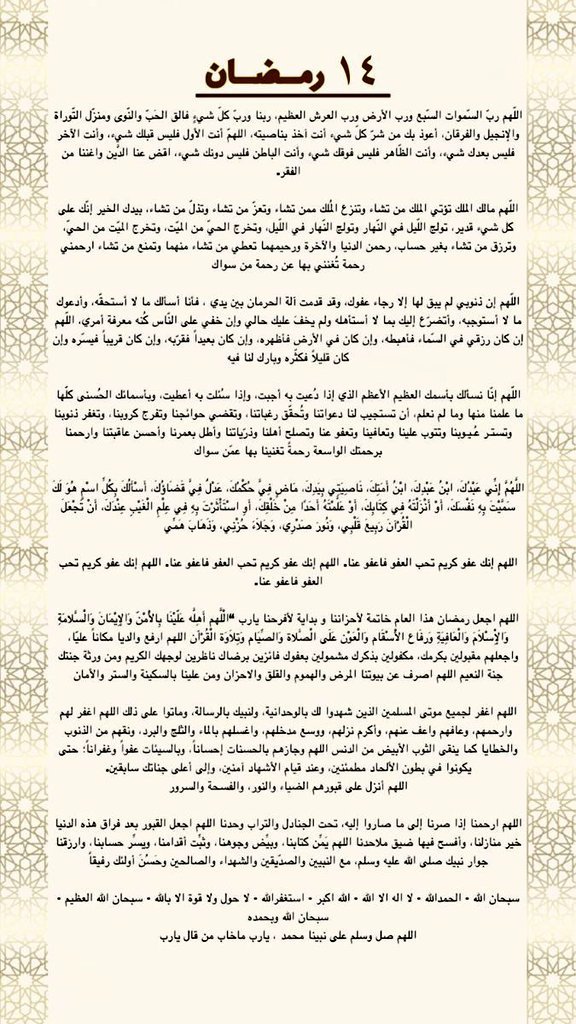 ١٤ رمــضــان
اللّهم ربّ السّموات السّبع ورب الأرض ورب العرش العظيم، ربنا وربّ كلّ شيءٍ فالق الحَبّ والنّوى ومنزّل التّوراة
والإنجيل والفرقان، أعوذ بك من شرّ كلّ شيء أنت آخذ بناصيته، اللهمّ أنت الأول فليس قبلك شيء، وأنت الآخر
فليس بعدك شيء، وأنت الظّاهر فليس فوقك شيء وأنت الباطن فليس دونك شيء، اقض عنا الدَّين واغننا من
الفقر.
اللّهم مالك الملك تؤتي الملك من تشاء وتنزع المُلك ممن تشاء وتعزّ من تشاء وتذلّ من تشاء، بيدك الخير إنّك على
كل شيء قدير، تولج اللّيل في النّهار وتولج النّهار في اللّيل، وتخرج الحيّ من الميّت، وتخرج الميّت من الحيّ،
وترزق من تشاء بغير حساب، رحمن الدنيا والآخرة ورحيمهما تعطي من تشاء منهما وتمنع من تشاء ارحمني
رحمة تُغنني بها عن رحمة من سواك
اللّهم إن ذنوبي لم يبق لها إلا رجاء عفوك، وقد قدمت آلة الحرمان بين يدي ، فأنا أسألك ما لا أستحقّه، وأدعوك
ما لا أستوجبه، وأتضرّع إليك بما لا أستأهله ولم يخفَ عليك حالي وإن خفي على النّاس كُنه معرفة أمري، اللّهم
إن كان رزقي في السّماء فأهبطه، وإن كان في الأرض فأظهره، وإن كان بعيداً فقرّبه، وإن كان قريباً فيسّره وإن
كان قليلاً فكثّره وبارك لنا فيه
اللّهم إنّا نسألك بأسمك العظيم الأعظم الذي إذا دُعيت به أجبت، وإذا سُئلت به أعطيت، وبأسمائك الحُسنى كلّها
ما علمنا منها وما لم نعلم، أن تستجيب لنا دعواتنا وتُحقّق رغباتنا، وتقضي حوائجنا وتفرج كروبنا، وتغفر ذنوبنا
وتستر عُيوبنا وتتوب علينا وتعافينا وتعفو عنا وتصلح أهلنا وذرّياتنا وأطل بعمرنا وأحسن عاقبتنا وارحمنا
برحمتك الواسعة رحمةً تغنينا بها عمّن سواك
اللَّهُمَّ إِنِّي عَبْدُكَ، ابْنُ عَبْدِكَ، ابْنُ أَمَتِكَ، نَاصِيَتِي بِيَدِكَ، مَاضٍ فِيَّ حُكْمُكَ، عَدْلٌ فِيَّ قَضَاؤُكَ، أَسْأَلُكَ بِكُلِّ اسْمٍ هُوَ لَكَ
سَمَّيْتَ بِهِ نَفْسَكَ، أَوْ أَنْزَلْتَهُ فِي كِتَابِكَ، أَوْ عَلَّمْتَهُ أَحَدًا مِنْ خَلْقِكَ، أَوِ اسْتَأْثَرْتَ بِهِ فِي عِلْمِ الْغَيْبِ عِنْدَكَ، أَنْ تَجْعَلَ
الْقُرْآنَ رَبِيعَ قَلْبِي، وَنُورَ صَدْرِي، وَجَلَاءَ حُزْنِي، وَذَهَابَ هَمِّي
اللهم إنك عفو كريم تحب العفو فاعفو عنا. اللهم إنك عفو كريم تحب العفو فاعفو عنا. اللهم إنك عفو كريم تحب
العفو فاعفو عنا.
اللهم اجعل رمضان هذا العام خاتمة لأحزاننا و بداية لأفرحنا يارب "اللَّهم أهِلَّه عَلَيْنَا بِالأَمْنِ وَالْإِيْمَانِ وَالْسَّلامَةِ
وَالْإِسْلَامِ وَالْعَافِيَةِ وَرِفَاعِ الأَسْقَامِ وَالْعَوْنِ عَلَى الْصَّلاة وَالصِّيَام وَتِلاوَة الْقُرْآن اللهم ارفع والديا مكاناً عليّا،
واجعلهم مقبولين بكرمك، مكفولين بذكرك مشمولين بعفوك فائزين برضاك ناظرين لوجهك الكريم ومن ورثة جنتك
جنة النعيم اللهم اصرف عن بيوتنا المرض والهموم والقلق والاحزان ومن علينا بالسكينة والستر والأمان
اللهم اغفر لجميع موتى المسلمين الذين شهدوا لك بالوحدانية، ولنبيك بالرسالة، وماتوا على ذلك اللهم اغفر لهم
وارحمهم، وعافهم واعف عنهم، وأكرم نزلهم، ووسع مدخلهم، واغسلهم بالماء والثلج والبرد، ونقهم من الذنوب
والخطايا كما ينقى الثوب الأبيض من الدنس اللهم وجازهم بالحسنات إحساناً، وبالسيئات عفواً وغفراناً؛ حتى
يكونوا في بطون الألحاد مطمئنين، وعند قيام الأشهاد آمنين، وإلى أعلى جناتك سابقين.
اللهم أنزل على قبورهم الضياء والنور، والفسحة والسرور
اللهم ارحمنا إذا صرنا إلى ما صاروا إليه، تحت الجنادل والتراب وحدنا اللهم اجعل القبور بعد فراق هذه الدنيا
خير منازلنا، وأفسح فيها ضيق ملاحدنا اللهم يَمِّن كتابنا، وبيِّض وجوهنا، وثبِّت أقدامنا، ويسِّر حسابنا، وارزقنا
جوار نبيك صلى الله عليه وسلم، مع النبيين والصدّيقين والشهداء والصالحين وحَسُنَ أولئك رفيقاً
سبحان الله • الحمدالله • لا اله الا الله • الله اكبر • استغفرالله • لا حول ولا قوة الا بالله • سبحان الله العظيم •
سبحان الله وبحمده
اللهم صل وسلم على نبينا محمد ، يارب ماخاب من قال يارب